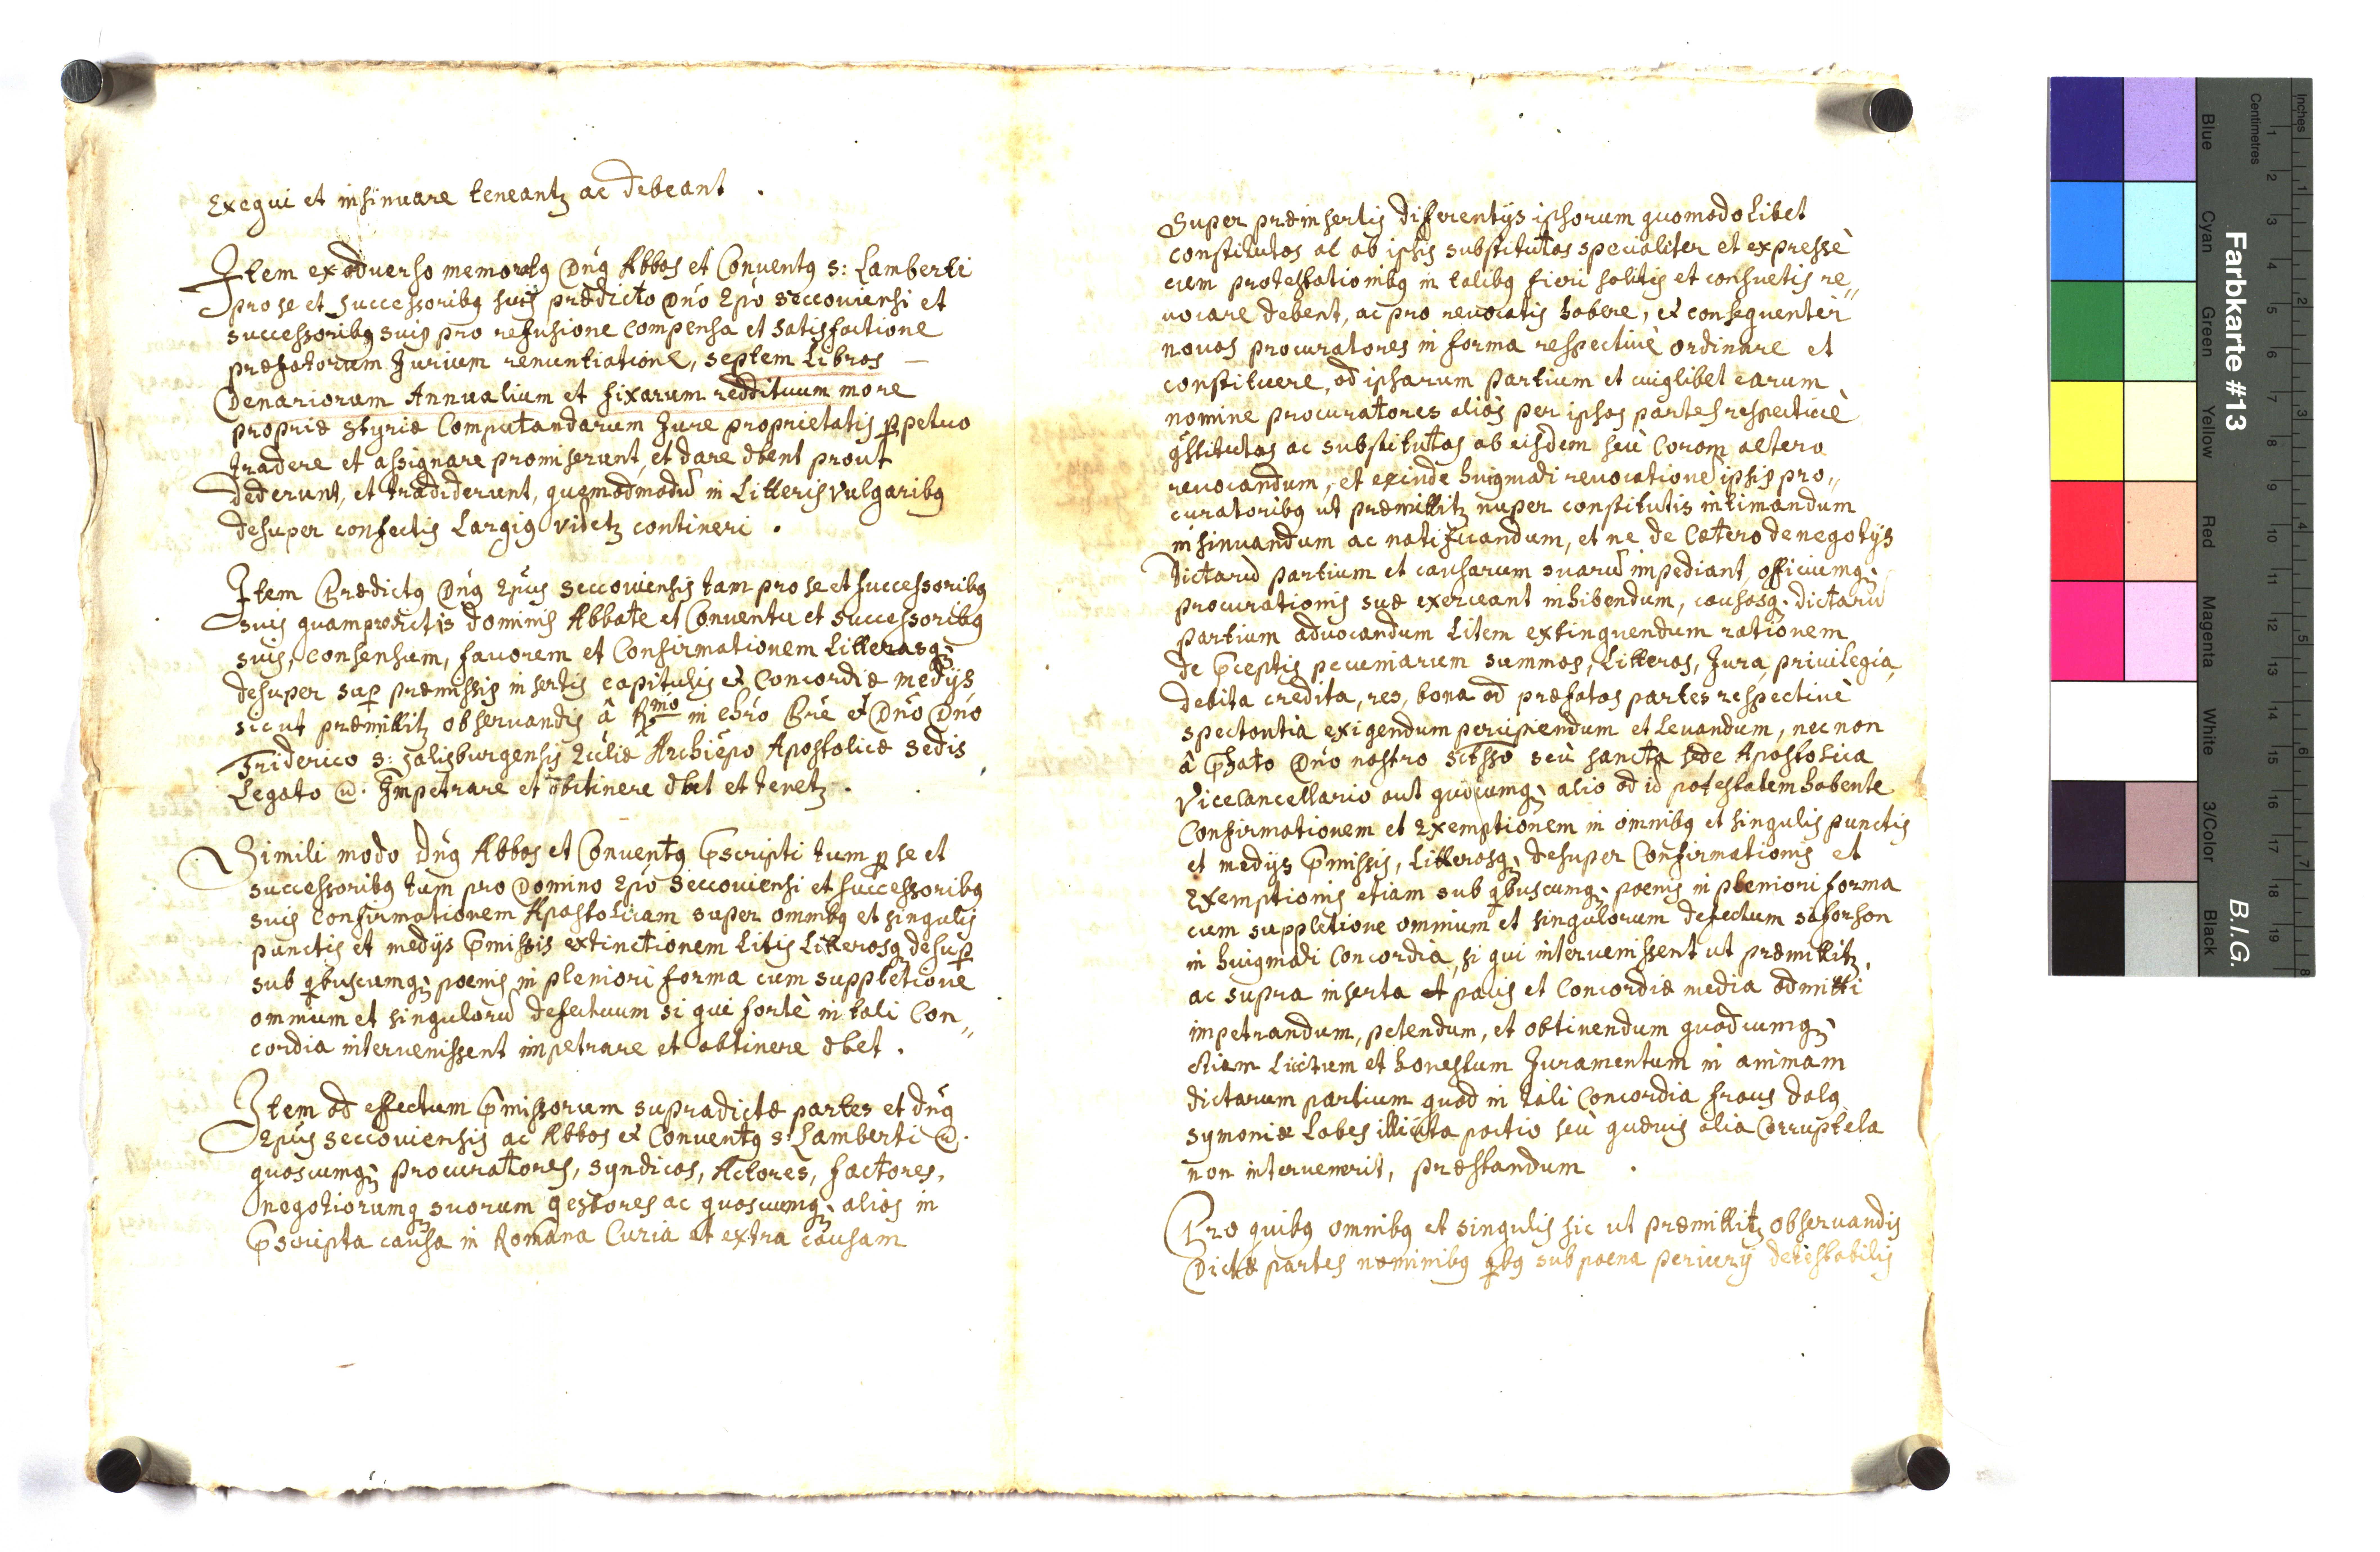 Exequi et insinuare teneantʒ ac debeant .
Item ex adverso memoratꝯ Dn̄ꝯ Abbas et Conventꝯ S: Lamberti
pro se et successoribꝯ suis prædicto Dn̄o Ep̄o Seccoviensi et
successoribꝯ suis pro refusione compensa et satisfactione
præfatorum Jurium renuntiatione, septem Libras —
Denariorum Annualium et fixarum reddituum more
propriè Styriæ Computandarum Jure proprietatis ꝑpetuo
tradere et assignare promiserunt, et dare dbent prout
dederunt, et tradiderunt, quemadmodū in Litteris vulgaribꝯ
desuper confectis Largiꝯ videtʒ contineri .
Item Prædictꝯ Dn̄ꝯ Ep̄us Seccoviensis tam pro se et successoribꝯ
suis quam prædictis dominis Abbate et Conventu et successoribꝯ
suis, consensum, favorem et Confirmationem Litterasqʒ
desuper suꝑ præmissis insertis capitulis et Concordiæ medijs
sicut præmittitʒ observandis â Rmo in Chr̄o Pr̄e et Dn̄o Dn̄o
Friderico S: Salisburgensis Ecc̄liæ Archiep̄o Apostolicæ Sedis
Legato @. Impetrare et obtinere dbet et tenetʒ .
Simili modo Dn̄ꝯ Abbas et Conventꝯ p̄scripti tum ꝓ se et
successoribꝯ tum pro Domino Ep̄o Seccoviensi et successoribꝯ
suis Confirmationem Apostolicam super omnibꝯ et singulis
punctis et medijs p̄missis extinctionem Litis Litterasqʒ desuꝑ
sub qbuscumqʒ poenis in pleniori forma cum suppletione
omnium et singulorū defectuum si qui fortè in tali Con„
cordia intervenissent impetrare et obtinere dbet .
Item ad effectum p̄missorum supradictæ partes et Dn̄ꝯ
Ep̄us Seccoviensis ac Abbas et Conventꝯ S: Lamberti @.
quoscumqʒ procuratores, syndicos, Actores, factores,
negotiorumqʒ suorum gestores ac quoscumqʒ alios in
p̄scripta causa in Romana Curia et extra causam
Super præinsertis differentijs ipsorum quomodolibet
constitutos al ab ipsis substitutos specialiter et expressè
cum protestationibꝯ in talibꝯ fieri solitis et consuetis re„
vocare debent, ac pro revocatis habere, et consequenter
novos procuratores in forma respectivè ordinare et
constituere, ad ipsarum partium et cuiꝯlibet earum
nomine procuratores aliàs per ipsas partes respectivè
ꝯstitutos ac substitutos ab eisdem seù Coram altero
revocandum, et exinde huiꝯmodi revocationē ipsis pro„
curatoribꝯ ut præmittitʒ nuper constitutis intimandum
insinuandum ac notificandum, et ne de Cætero de negotijs
dictarū partium et causarum suarū impediant, officiumqʒ
procurationis suæ exerceant inhibendum, causasqʒ dictarū
partium advocandum Litem extinguendum rationem
de p̄ceptis pecuniarum summas, Litteras, Jura, privilegia,
debita credita, res, bona ad præfatas partes respectivè
spectantia exigendum percipiendum et Levandum, nec non
â p̄fato Dn̄o nostro Sctsso seù sancta sede Apostolica
Vicecancellario aut quocumqʒ alio ad id potestatem habente
Confirmationem et Exemptionem in omnibꝯ et singulis punctis
et medijs p̄missis, Litterasqʒ desuper Confirmationis et
Exemptionis etiam sub qbuscumqʒ poenis in pleniori forma
cum suppletione omnium et singulorum defectum si forsan
in huiꝯmodi Concordia, si qui intervenissent ut præmittitʒ,
ac supra inserta et pacis et Concordiæ media admitti
impetrandum, petendum, et obtinendum quodcumqʒ
etiam Licitum et honestum Juramentum in animam
dictarum partium quod in tali Concordia fraus dolꝯ
symoniæ Labes illicita pactio seù quævis alia Corruptela
non intervenerit, præstandum .
Pro quibꝯ omnibꝯ et singulis sic ut præmittitʒ observandis
Dictæ partes nominibꝯ qbꝯ sub poena periurij detestabilis
Farbkarte #13
B.I.G.
Inches
Centimetres
1 2 3 4 5 6 7 8 9 10 11 12 13 14 15 16 17 18 19
1 2 3 4 5 6 7 8
Blue
Cyan
Green
Yellow
Red
Magenta
White
3/Color
Black